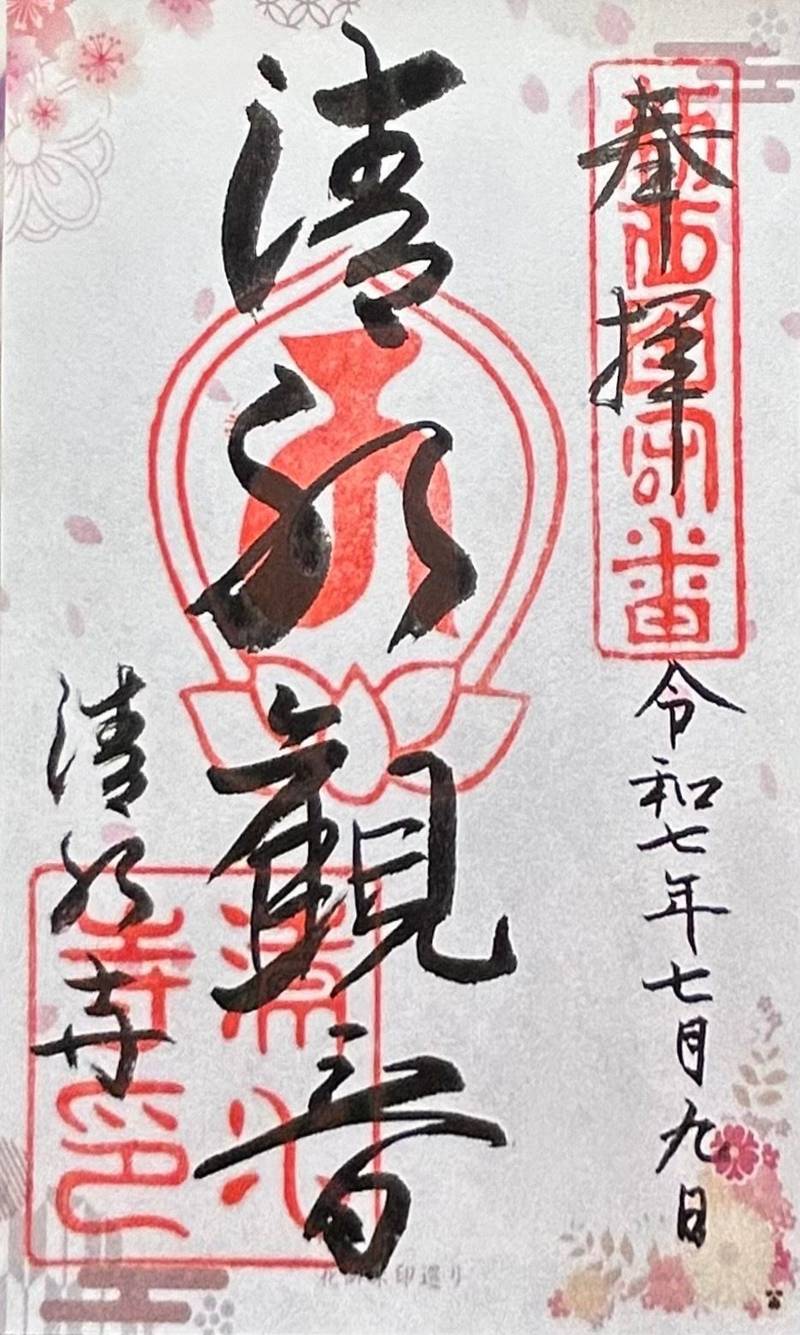 奉拝
新西国客番
令和七年七月九日
清水観音
清水寺
清水寺印
花御朱印巡り